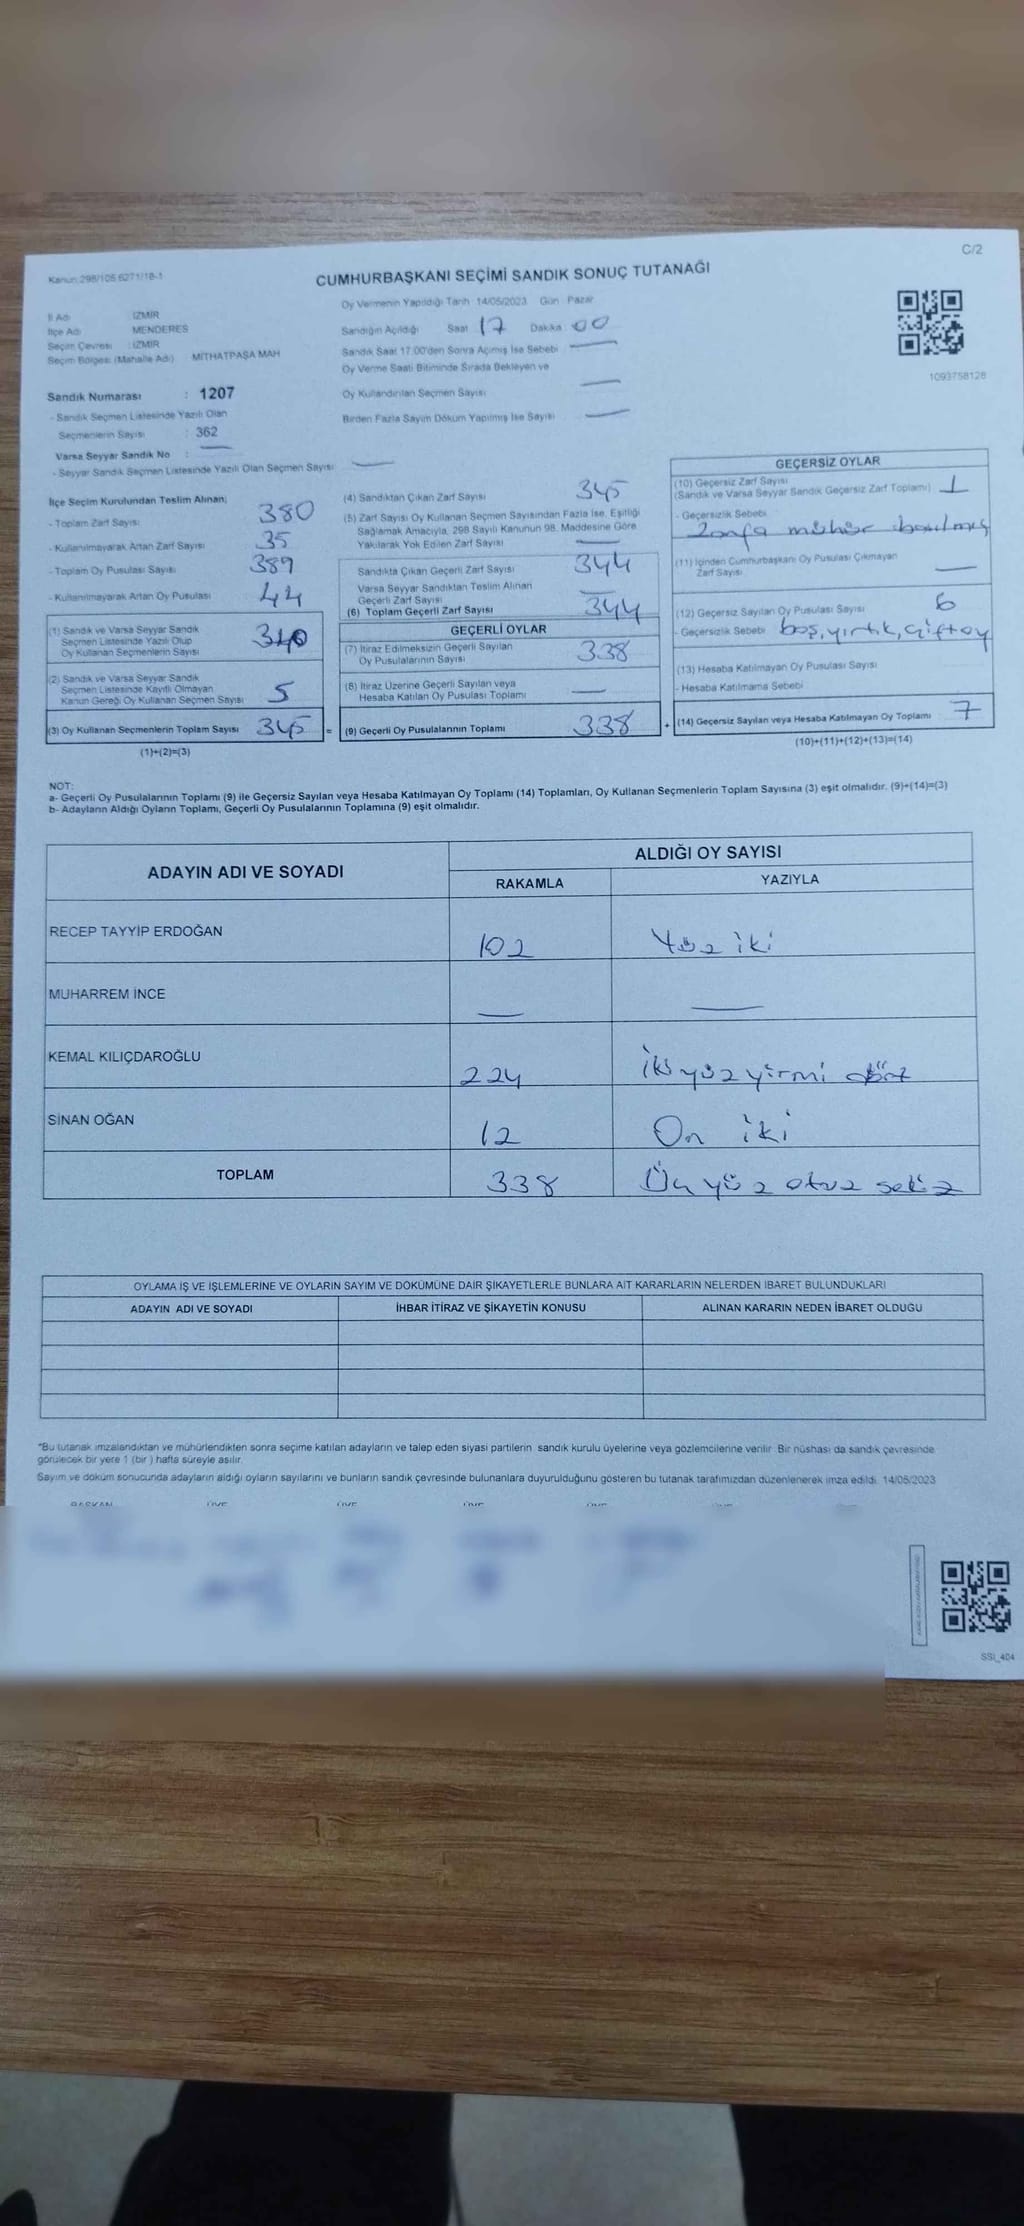 C/2
Kanun 298/105 6271/18-1
CUMHURBAŞKANI SEÇİMİ SANDIK SONUÇ TUTANAĞI
Oy Vermenin Yapıldığı Tarih 14/05/2023 Gün : Pazar
İl Adı : İZMİR
İlçe Adı : MENDERES
Seçim Çevresi : İZMİR
Seçim Bölgesi (Mahalle Adı) : MİTHATPAŞA MAH
Sandığın Açıldığı Saat 17 Dakika 00
Sandık Saat 17:00'den Sonra Açılmış İse Sebebi —
Oy Verme Saati Bitiminde Sırada Bekleyen ve
Oy Kullandırılan Seçmen Sayısı —
Birden Fazla Sayım Döküm Yapılmış İse Sayısı —
1093758128
Sandık Numarası : 1207
- Sandık Seçmen Listesinde Yazılı Olan
Seçmenlerin Sayısı : 362
Varsa Seyyar Sandık No : —
- Seyyar Sandık Seçmen Listesinde Yazılı Olan Seçmen Sayısı —
İlçe Seçim Kurulundan Teslim Alınan;
- Toplam Zarf Sayısı 380
- Kullanılmayarak Artan Zarf Sayısı 35
- Toplam Oy Pusulası Sayısı 389
- Kullanılmayarak Artan Oy Pusulası 44
(1) Sandık ve Varsa Seyyar Sandık
Seçmen Listesinde Yazılı Olup
Oy Kullanan Seçmenlerin Sayısı 340
(2) Sandık ve Varsa Seyyar Sandık
Seçmen Listesinde Kayıtlı Olmayan
Kanun Gereği Oy Kullanan Seçmen Sayısı 5
(3) Oy Kullanan Seçmenlerin Toplam Sayısı 345 =
(1)+(2)=(3)
(4) Sandıktan Çıkan Zarf Sayısı 345
(5) Zarf Sayısı Oy Kullanan Seçmen Sayısından Fazla İse, Eşitliği
Sağlamak Amacıyla, 298 Sayılı Kanunun 98. Maddesine Göre
Yakılarak Yok Edilen Zarf Sayısı —
Sandıkta Çıkan Geçerli Zarf Sayısı 344
Varsa Seyyar Sandıktan Teslim Alınan
Geçerli Zarf Sayısı —
(6) Toplam Geçerli Zarf Sayısı 344
GEÇERLİ OYLAR
(7) İtiraz Edilmeksizin Geçerli Sayılan
Oy Pusulalarının Sayısı 338
(8) İtiraz Üzerine Geçerli Sayılan veya
Hesaba Katılan Oy Pusulası Toplamı —
(9) Geçerli Oy Pusulalarının Toplamı 338 +
GEÇERSİZ OYLAR
(10) Geçersiz Zarf Sayısı
(Sandık ve Varsa Seyyar Sandık Geçersiz Zarf Toplamı) 1
- Geçersizlik Sebebi
Zarfa mühür basılmış
(11) İçinden Cumhurbaşkanı Oy Pusulası Çıkmayan
Zarf Sayısı —
(12) Geçersiz Sayılan Oy Pusulası Sayısı 6
- Geçersizlik Sebebi boş, yırtık, çift oy
(13) Hesaba Katılmayan Oy Pusulası Sayısı
- Hesaba Katılmama Sebebi
(14) Geçersiz Sayılan veya Hesaba Katılmayan Oy Toplamı 7
(10)+(11)+(12)+(13)=(14)
NOT:
a- Geçerli Oy Pusulalarının Toplamı (9) ile Geçersiz Sayılan veya Hesaba Katılmayan Oy Toplamı (14) Toplamları, Oy Kullanan Seçmenlerin Toplam Sayısına (3) eşit olmalıdır. (9)+(14)=(3)
b- Adayların Aldığı Oyların Toplamı, Geçerli Oy Pusulalarının Toplamına (9) eşit olmalıdır.
ADAYIN ADI VE SOYADI ALDIĞI OY SAYISI
RAKAMLA YAZIYLA
RECEP TAYYİP ERDOĞAN 102 Yüz iki
MUHARREM İNCE — —
KEMAL KILIÇDAROĞLU 224 İki yüz yirmi dört
SİNAN OĞAN 12 On iki
TOPLAM 338 Üç yüz otuz sekiz
OYLAMA İŞ VE İŞLEMLERİNE VE OYLARIN SAYIM VE DÖKÜMÜNE DAİR ŞİKAYETLERLE BUNLARA AİT KARARLARIN NELERDEN İBARET BULUNDUKLARI
ADAYIN ADI VE SOYADI İHBAR İTİRAZ VE ŞİKAYETİN KONUSU ALINAN KARARIN NEDEN İBARET OLDUĞU
"Bu tutanak imzalandıktan ve mühürlendikten sonra seçime katılan adayların ve talep eden siyasi partilerin sandık kurulu üyelerine veya gözlemcilerine verilir. Bir nüshası da sandık çevresinde
görülecek bir yere 1 (bir ) hafta süreyle asılır.
Sayım ve döküm sonucunda adayların aldığı oyların sayılarını ve bunların sandık çevresinde bulunanlara duyurulduğunu gösteren bu tutanak tarafımızdan düzenlenerek imza edildi. 14/05/2023
BAŞKAN ÜYE ÜYE ÜYE ÜYE
SSI_404